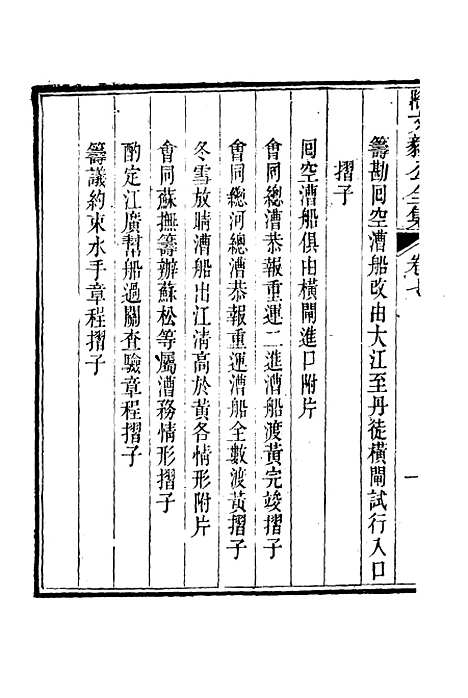 文毅公全集 卷七 一
籌勘囘空漕船改由大江至丹徒橫閘試行入口
摺子
囘空漕船俱由橫閘進口附片
會同總漕恭報重運二進漕船渡黃完竣摺子
會同總河總漕恭報重運漕船全數渡黃摺子
冬雪放晴漕船出江淸高於黃各情形附片
會同蘇撫籌辦蘇松等屬漕務情形摺子
酌定江廣幫船過關查驗章程摺子
籌議約束水手章程摺子